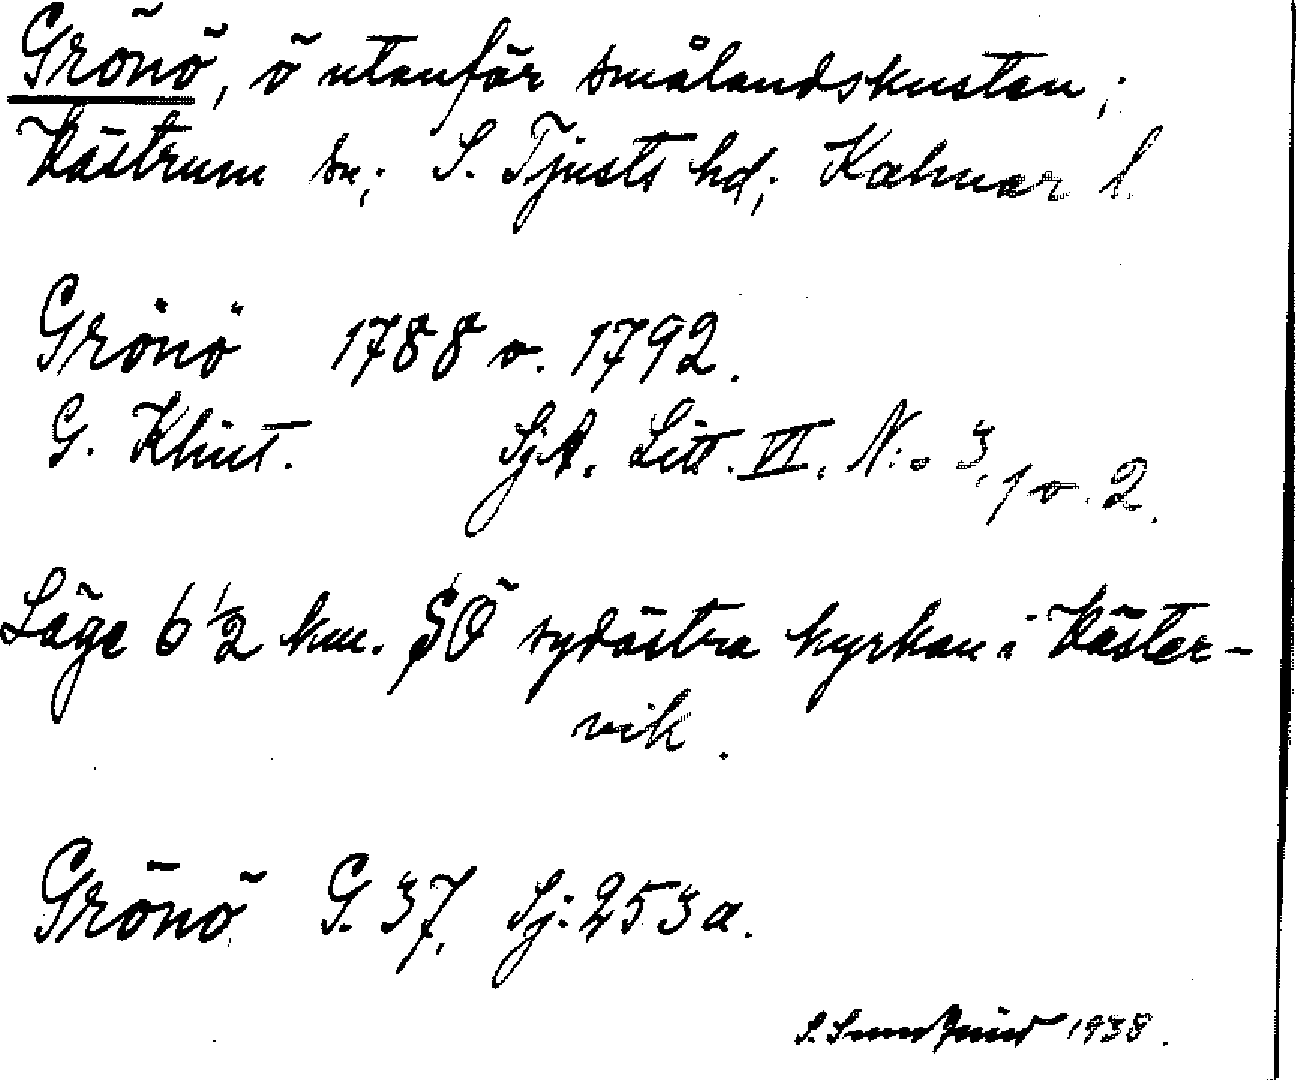 Grönö, ö utanför smålandskusten;
Västrum sn; S. Tjusts hd; Kalmar l.
Grönö 1788 o. 1792.
G. Klint. SjA. Litt. VI. N:o 3, 1 o. 2.
Läge 6 1/2 km. SÖ sydöstra kyrkan i Väster-
vik.
Grönö G. 37, Sj: 253a.
S. 1938.